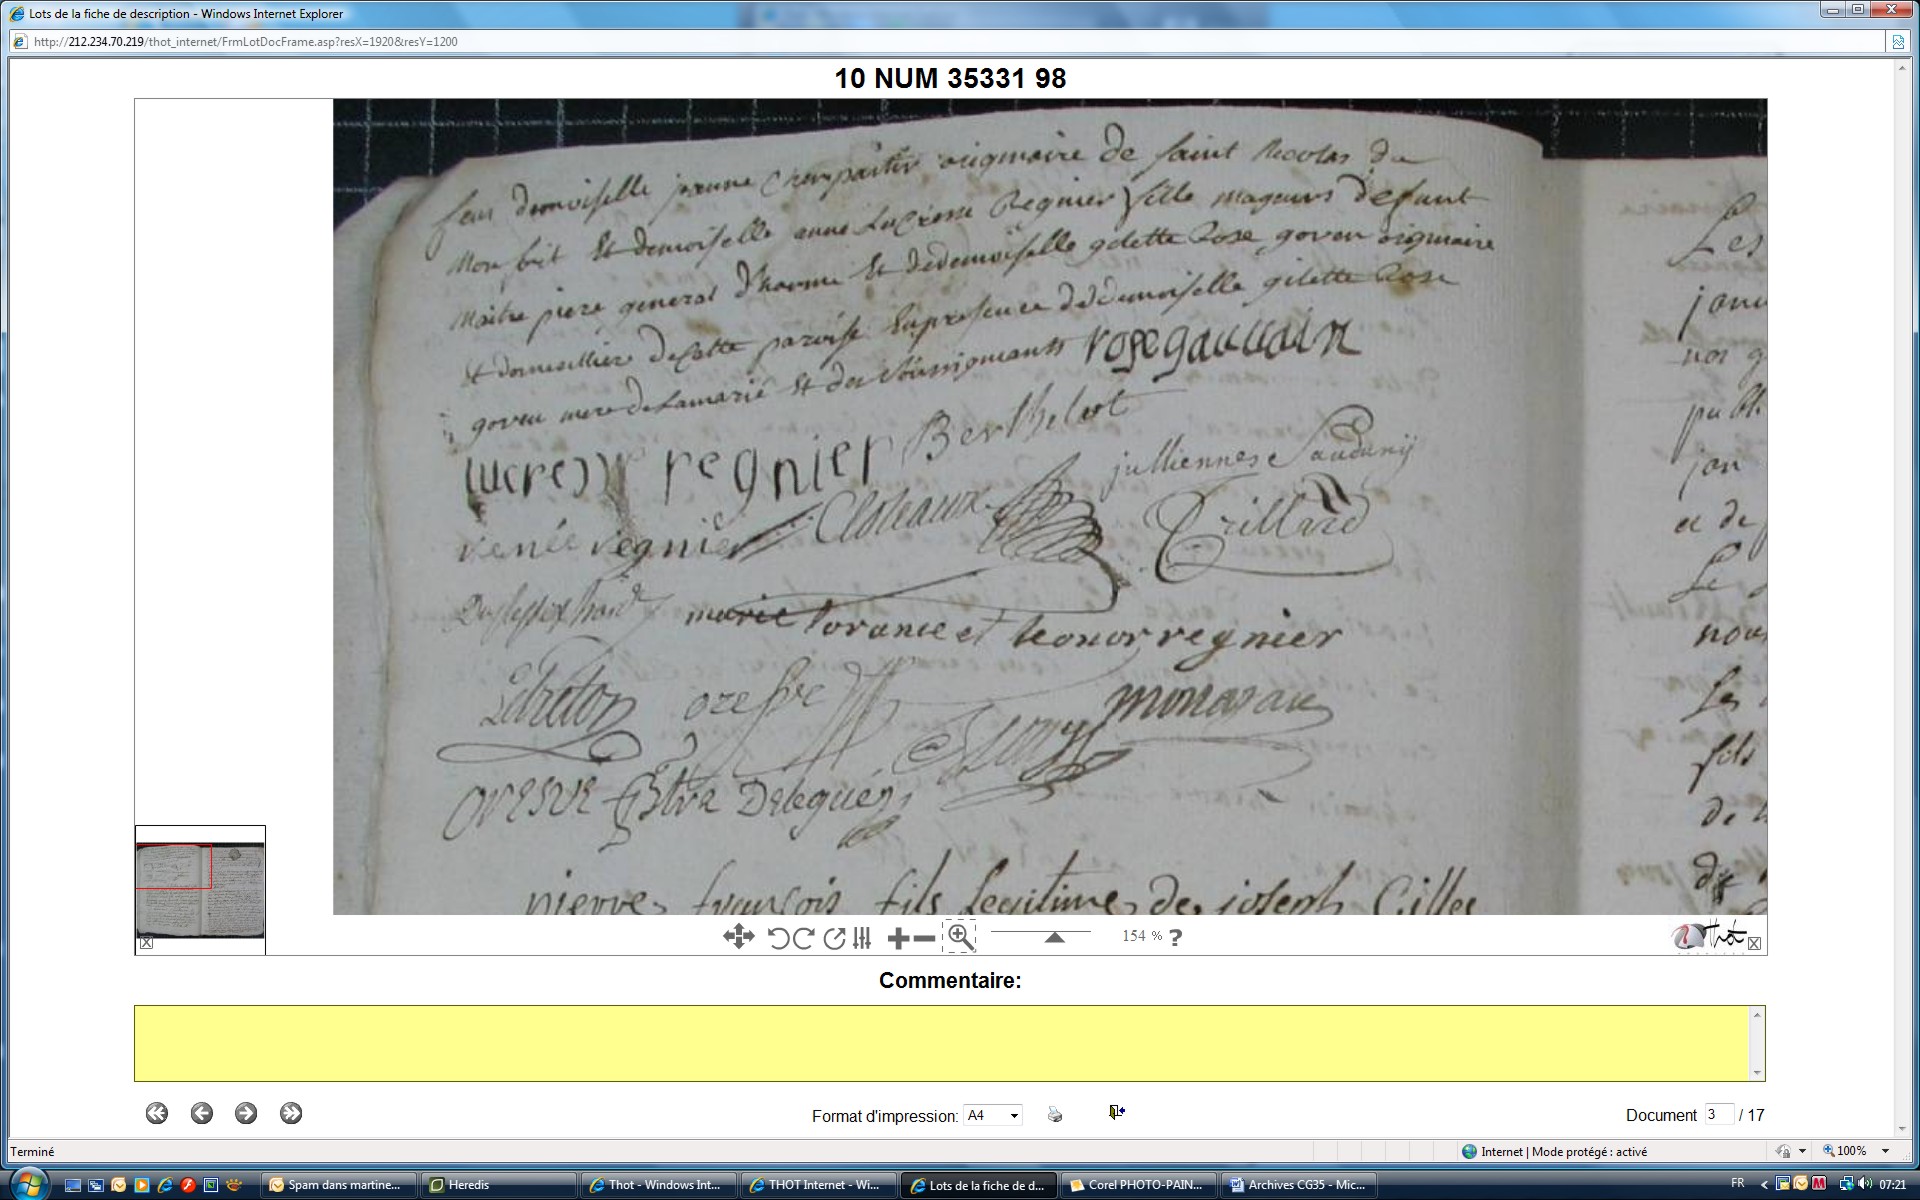 Lots de la fiche de description - Windows Internet Explorer
http://212.234.70.219/thot_internet/FrmLotDocFrame.asp?resX=1920&resY=1200
10 NUM 35331 98
feue demoiselle jeanne originaire de saint Nicolas de
Monfort Et demoiselle anne Lucresse Regnier fille majeure defunt
Maitre piere general Et dedemoiselle gilette Rose goven originaire
Et domicilliere decette paroisse Enpresence dedemoiselle gilette Rose
goven mere delamariée Et des soussignants rose gauuain
lucresse regnier Berthelot
renée regnier Cloteaux julliennes Trillard
marie lorance et leonor regnier
Lebreton oresve monarau
oresve ptre Deleguen
pierre françois fils legitime de joseph Gilles
Les
janv
nos g
publ
jan
et de
Le
nou
Les
fils
de
de
154 % ?
Thot
Commentaire:
Format d'impression: A4
Document 3 / 17
Terminé
Internet | Mode protégé : activé
100%
Spam dans martine...
Heredis
Thot - Windows Int...
THOT Internet - Wi...
Lots de la fiche de d...
Corel PHOTO-PAIN...
Archives CG35 - Mic...
FR
07:21